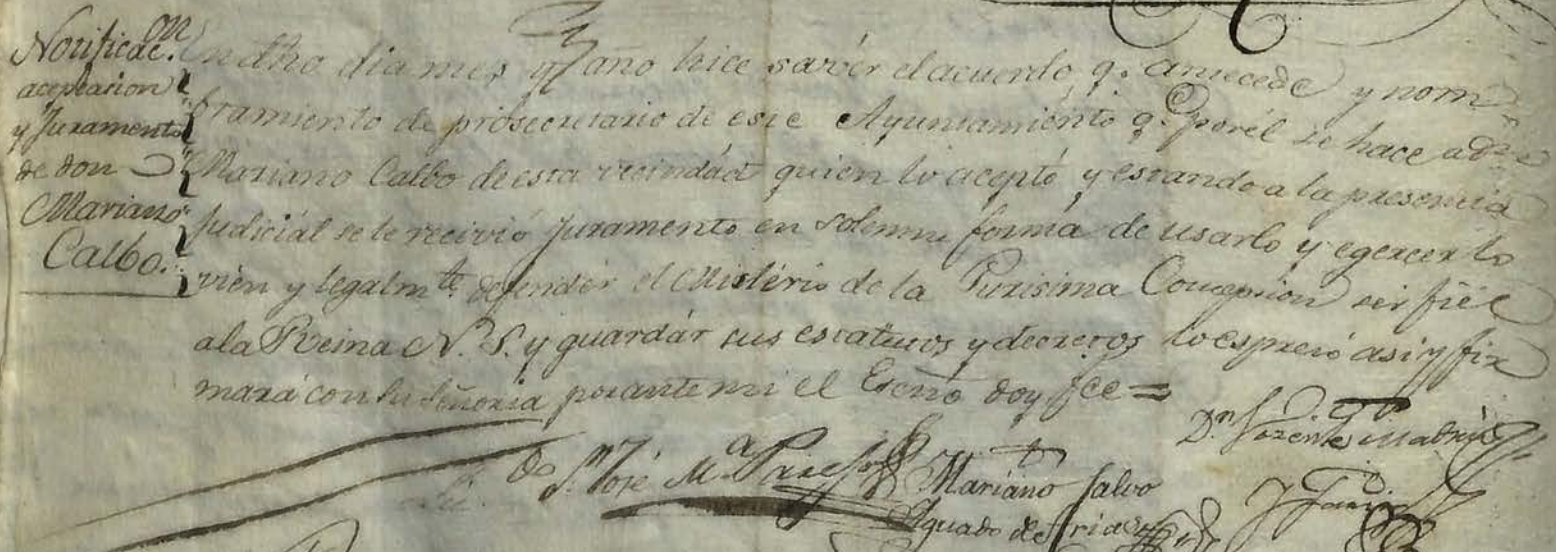 Notificac.on
aceptacion
y Juramento
de don
Mariano
Calbo.
En dho dia mes y año hice savér el acuerdo q. antecede y nom
bramiento de prosecretario de este Ayuntamiento q. por él se hace a Dn
Mariano Calbo de esta vecindád quien lo aceptó y estando a la presencia
Judiciál se le recivió Juramento en solemne forma de usarlo y egercerlo
vien y legalm.te defender el Mistério de la Purisima Concepcion ser fiél
a la Reina N. S. y guardár sus estatutos y decretos lo espresó asi y fir
mará con su Señoria por ante mi el Escno doy fee =
Dn Vizente Madrid
José M.a
Mariano Calvo
Aguado de Frias